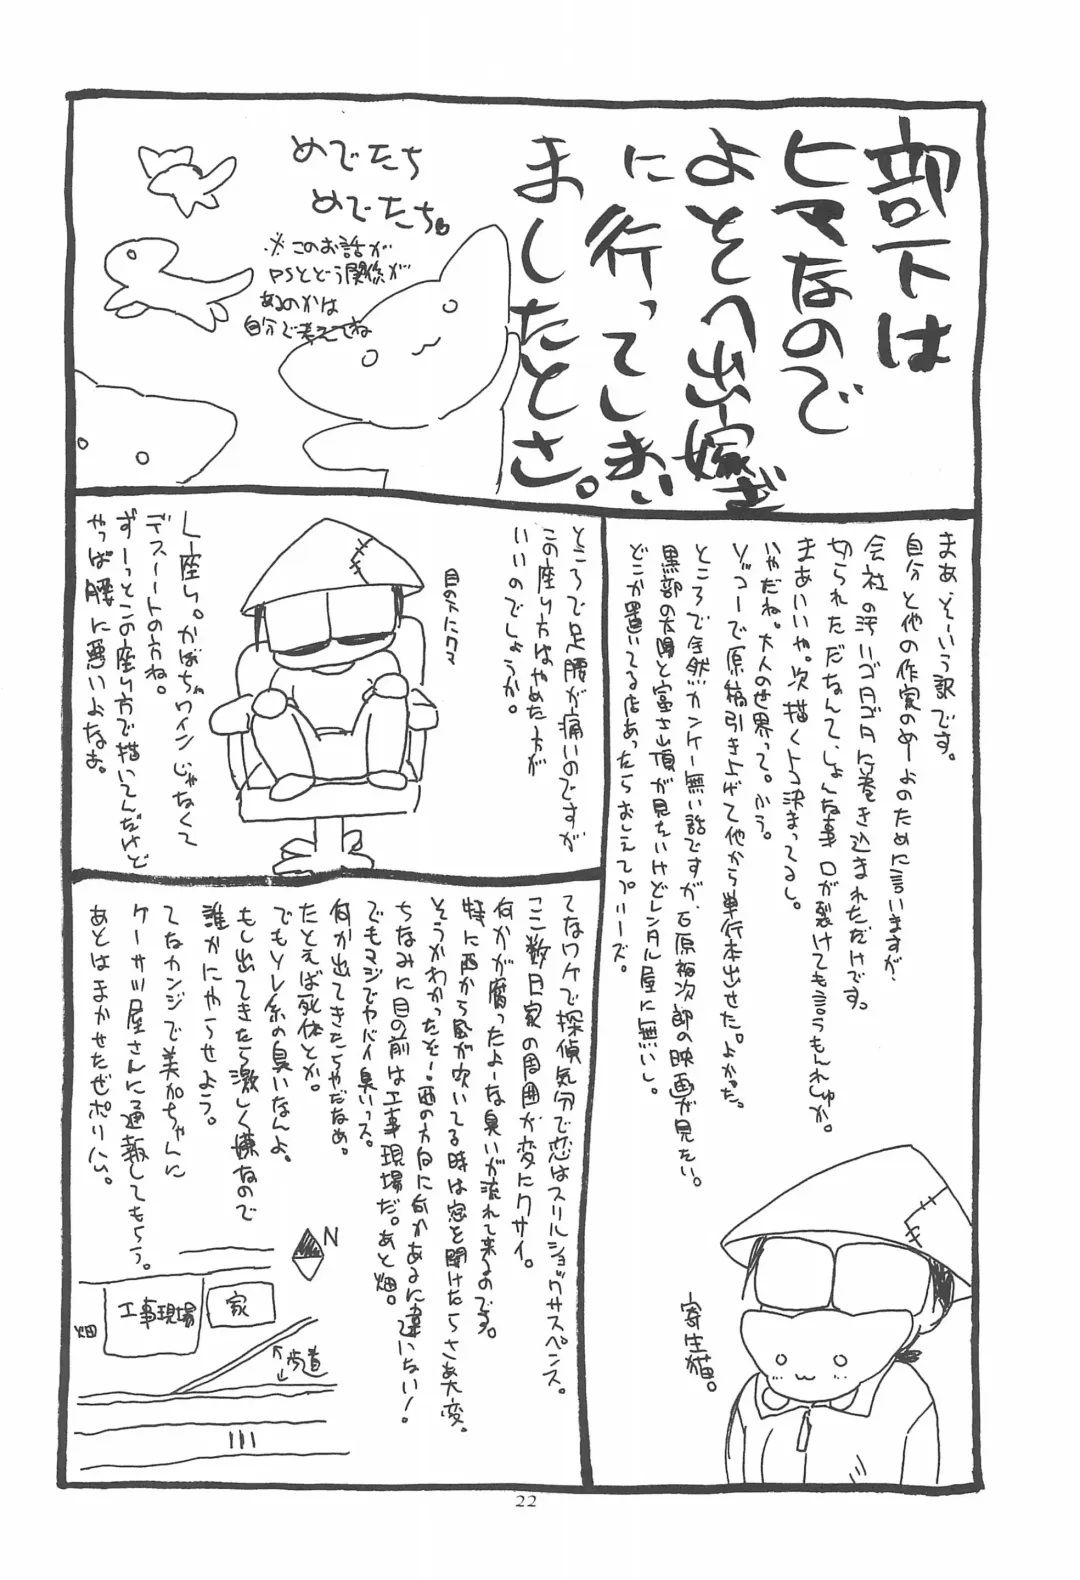 部下は
ヒマなので
よそへ出嫁ぎ
に行ってしまい
ましたとさ。
めでたち
めでたち。
※このお話が
PSとどう関係が
あるのかは
自分で考えてね
まあ、そーいう訳です。
自分と他の作家のめーよのために言いますが、
会社の汚いゴタゴタに巻き込まれただけです。
切られただなんて、しょんな事口が裂けても言うもんれしゅか。
まあいいや。次描くトコ決まってるし。
いやだね。大人の世界って。かう。
ソッコーで原稿引き上げて他から単行本出せた。よかった。
ところで全然カンケー無い話ですが、石原裕次郎の映画が見たい。
黒部の太陽と富士山頂が見たいけどレンタル屋に無いし。
どこか置いてる店あったらおしえてプリーズ。
寄生猫。
ところで足腰が痛いのですが
この座り方はやめた方が
いいのでしょうか。
目の下にクマ
L座り。かぼちゃワインじゃなくて
デスノートの方ね。
ずーっとこの座り方で描いてんだけど
やっぱ腰に悪いよなぁ。
てなワケで探偵気分で恋はスリルショックサスペンス。
ここ数日家の周囲が変にクサイ。
何かが腐ったよーな臭いが流れて来るのです。
特に西から風が吹いてる時は窓を開けたらさあ大変。
そうかわかったぞー!西の方向に何かあるに違いない!
ちなみに目の前は工事現場だ。あと畑。
でもマジでヤバイ臭いっス。
何か出てきたらやだなぁ。
たとえば死体とか。
でもソレ系の臭いなんよ。
もし出てきたら激しく嫌なので
誰かにやらせよう。
てなカンジで美加ちゃんに
ケーサツ屋さんに通報してもらう。
あとはまかせたぜポリハム。
N
畑
工事現場
家
歩道
22